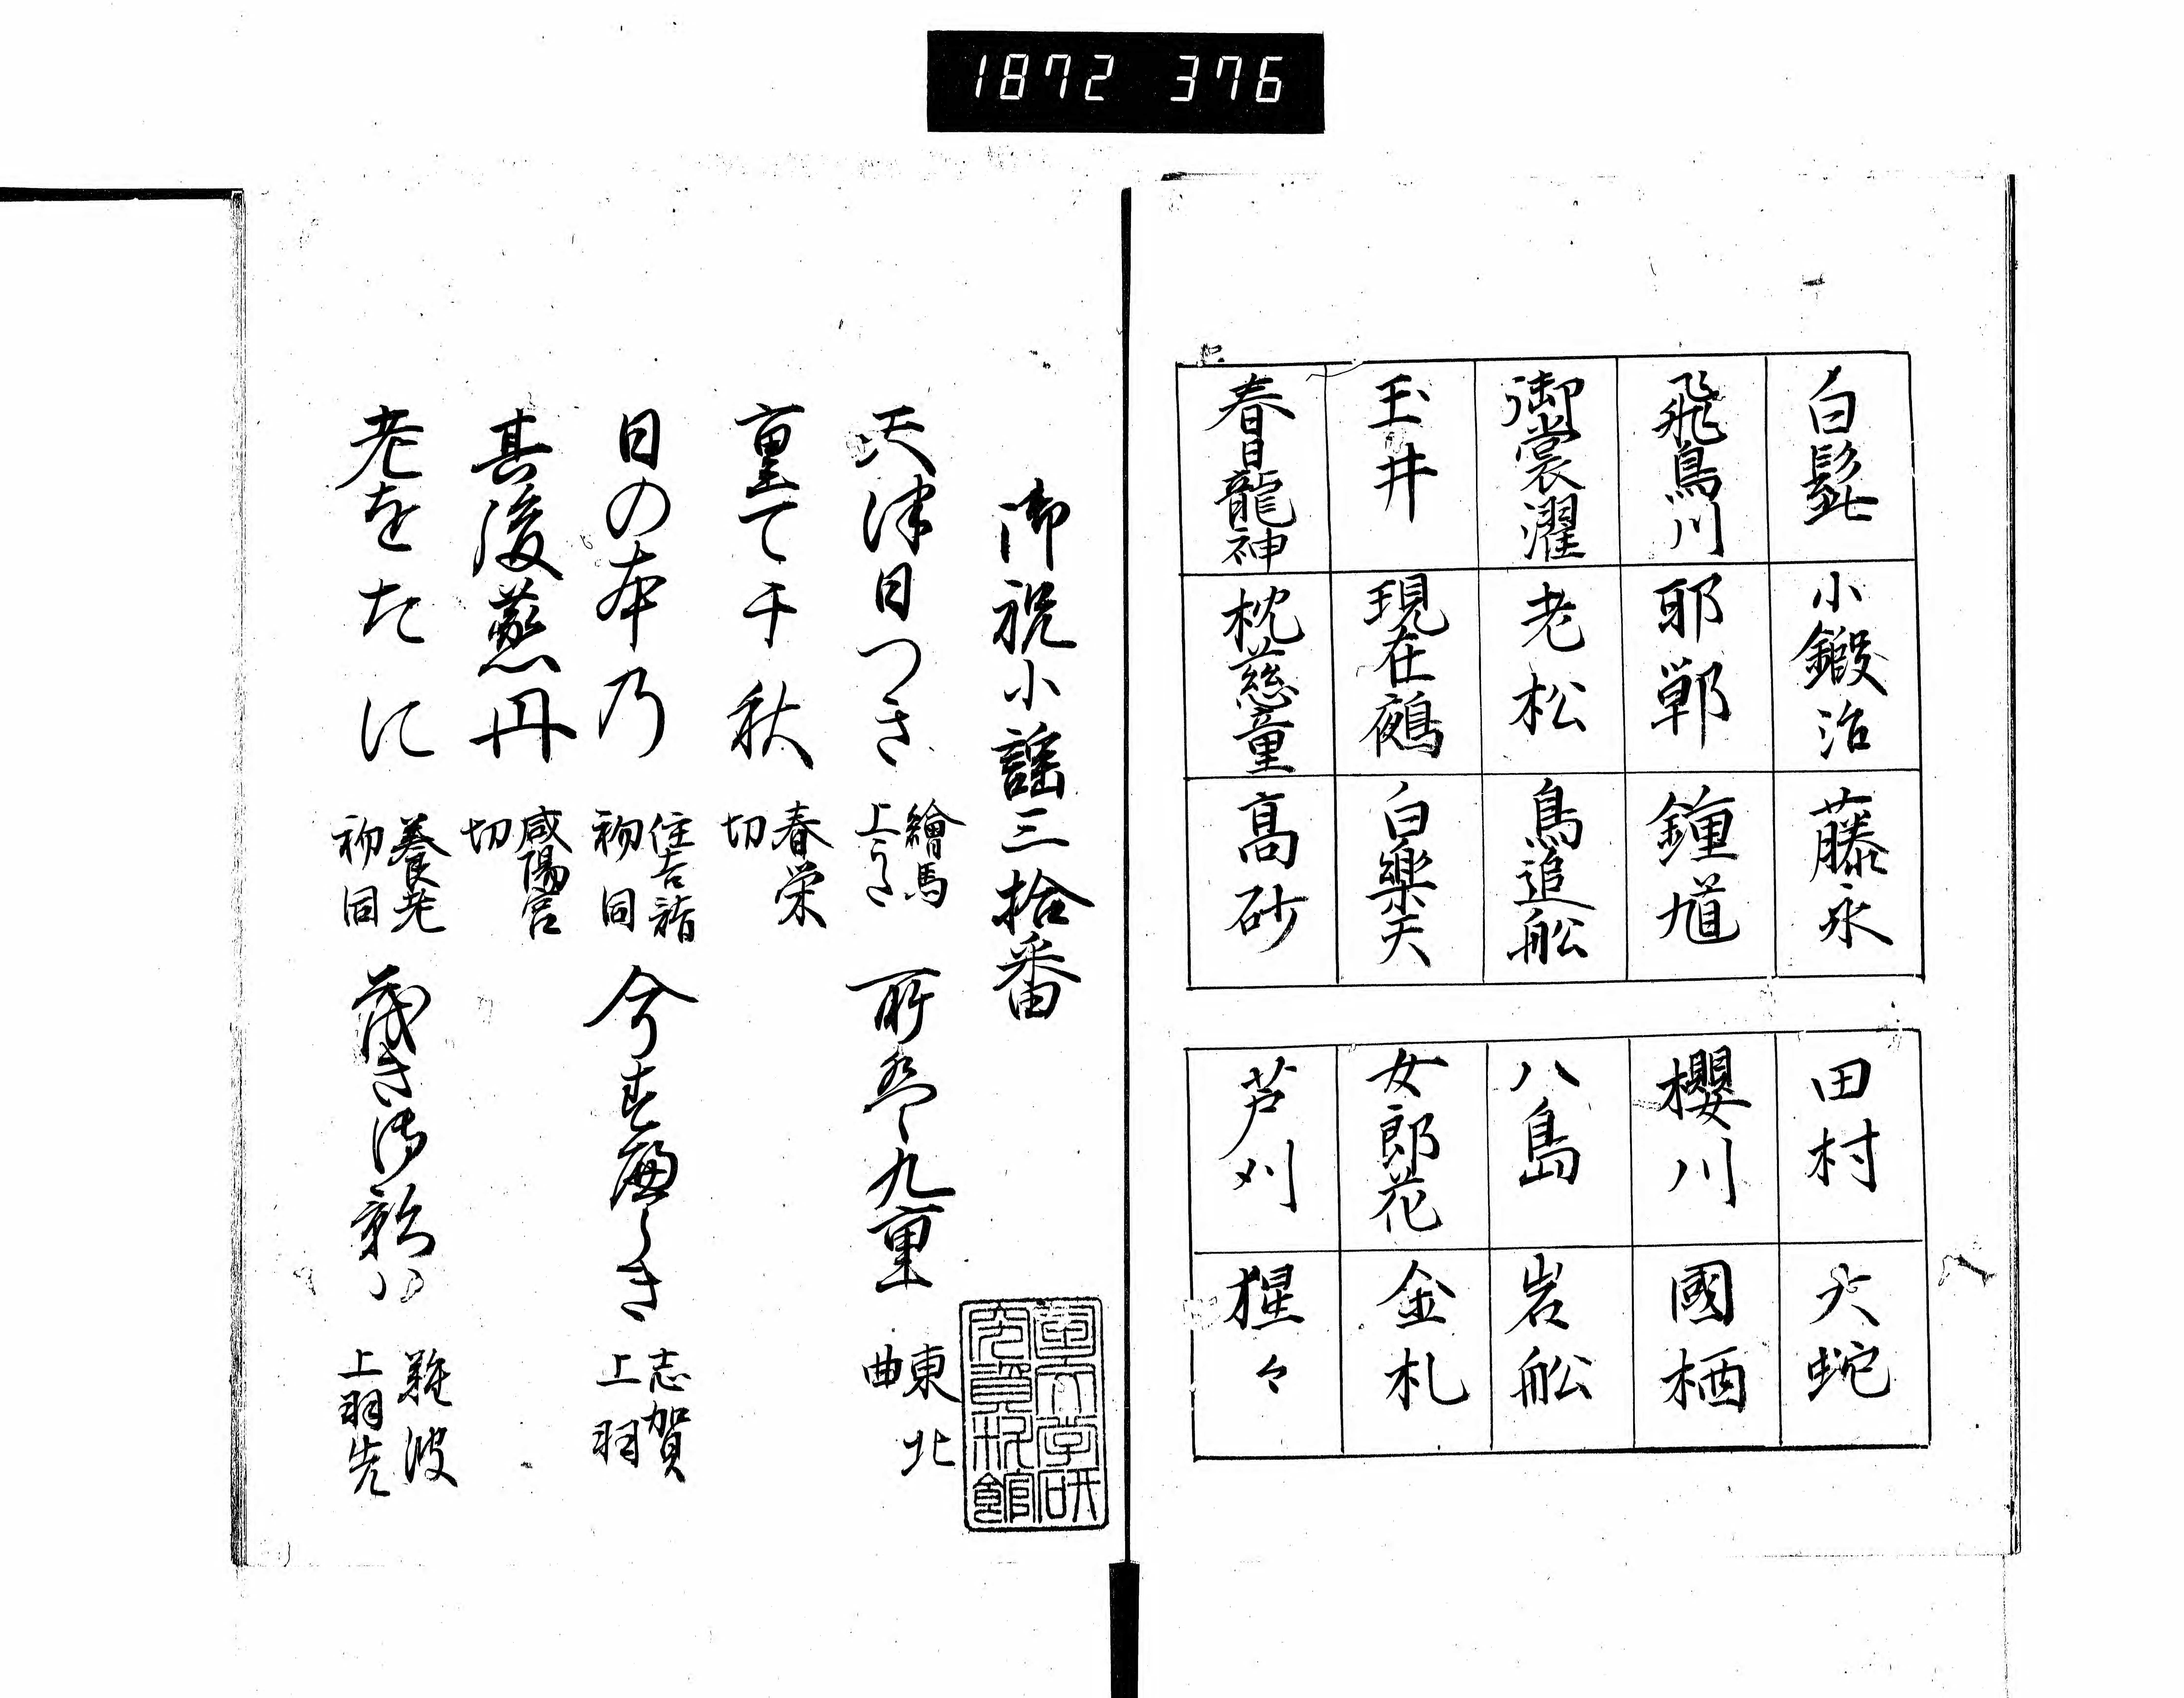 1872 376
白髭
小鍛治
藤永
飛鳥川
邯鄲
鍾馗
御裳濯
老松
鳥追舩
玉井
現在鵺
白樂天
春日龍神
枕慈童
髙砂
田村
大蛇
櫻川
國栖
八島
岩舩
女郎花
金札
芦刈
猩々
御祝小謡三拾番
天津日つき
繪馬
所は九重
東北
曲
重て千秋
春栄
切
日の本乃
住吉詣
初同
志賀
上羽
其後燕丹
咸陽宮
切
老をたに
養老
初同
難波
上羽先
国文学研
究資料館